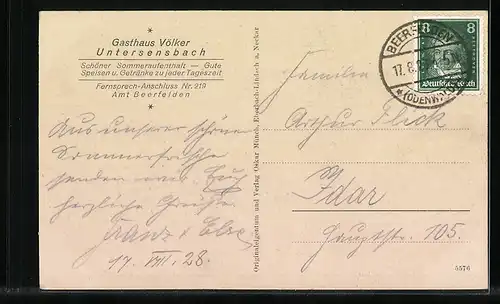 Gasthaus Völker
Untersensbach
Schöner Sommeraufenthalt — Gute
Speisen u. Getränke zu jeder Tageszeit
Fernsprech-Anschluss Nr. 219
Amt Beerfelden
Aus unserer schönen
Sommerfrische
senden wir Euch
herzliche Grüsse
Franz u. Else
17. VIII. 28.
Originaleigentum und Verlag Oskar Münch, Eberbach-Lindach a. Neckar
8 8
Deutsches Reich
BEERFELDEN
17.8.
(ODENWALD)
Familie
Arthur Flick
Idar
Hauptstr. 105.
5576